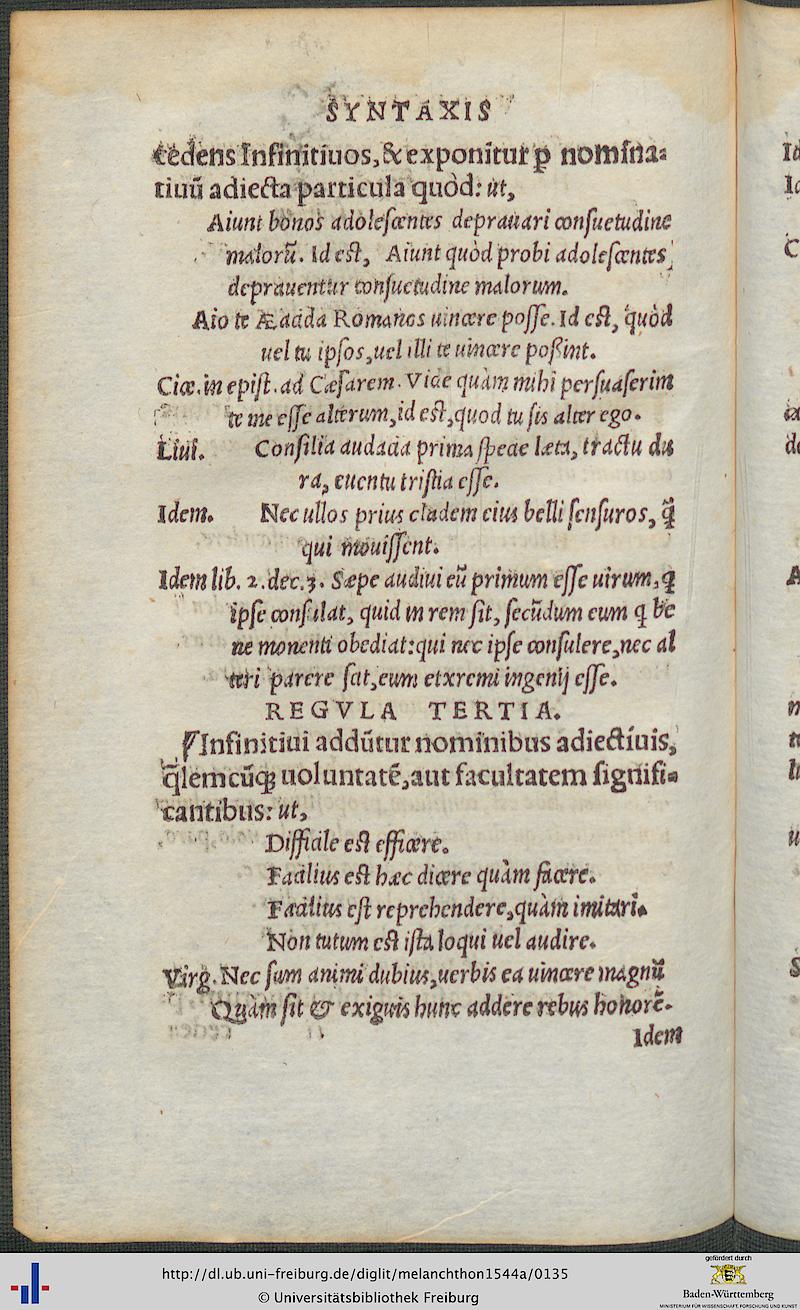 SYNTAXIS
cedens Infinitiuos, & exponitur p̱ nomina-
tiuū adiecta particula quòd: ut,
Aiunt bonos adolescentes deprauari consuetudine
malorū. Id est, Aiunt quòd probi adolescentes
deprauentur consuetudine malorum.
Aio te Æacida Romanos uincere posse. Id est, quòd
uel tu ipsos, uel illi te uincere poßint.
Cice. in epist. ad Cæsarem. Vide quàm mihi persuaserim
te me esse alterum, id est, quod tu sis alter ego.
Liui. Consilia audacia prima specie læta, tractu du
ra, euentu tristia esse.
Idem. Nec ullos prius cladem eius belli sensuros, q̄̃
qui mouissent.
Idem lib. 2. dec. 3. Sæpe audiui eū primum esse uirum, q
ipse consulat, quid in rem sit, secūdum eum q be
ne monenti obediat: qui nec ipse consulere, nec al
teri parere sciat, eum etxremi ingenij esse.
REGVLA TERTIA.
Infinitiui addūtur nominibus adiectiuis,
q̄lemcūq; uoluntatē, aut facultatem signifi-
cantibus: ut,
Difficile est efficere.
Facilius est hæc dicere quàm facere.
Facilius est reprehendere, quàm imitari.
Non tutum est ista loqui uel audire.
Virg. Nec sum animi dubius, uerbis ea uincere magnū
Quàm sit & exiguis hunc addere rebus honorē.
Idem
http://dl.ub.uni-freiburg.de/diglit/melanchthon1544a/0135
© Universitätsbibliothek Freiburg
gefördert durch
Baden-Württemberg
MINISTERIUM FÜR WISSENSCHAFT, FORSCHUNG UND KUNST